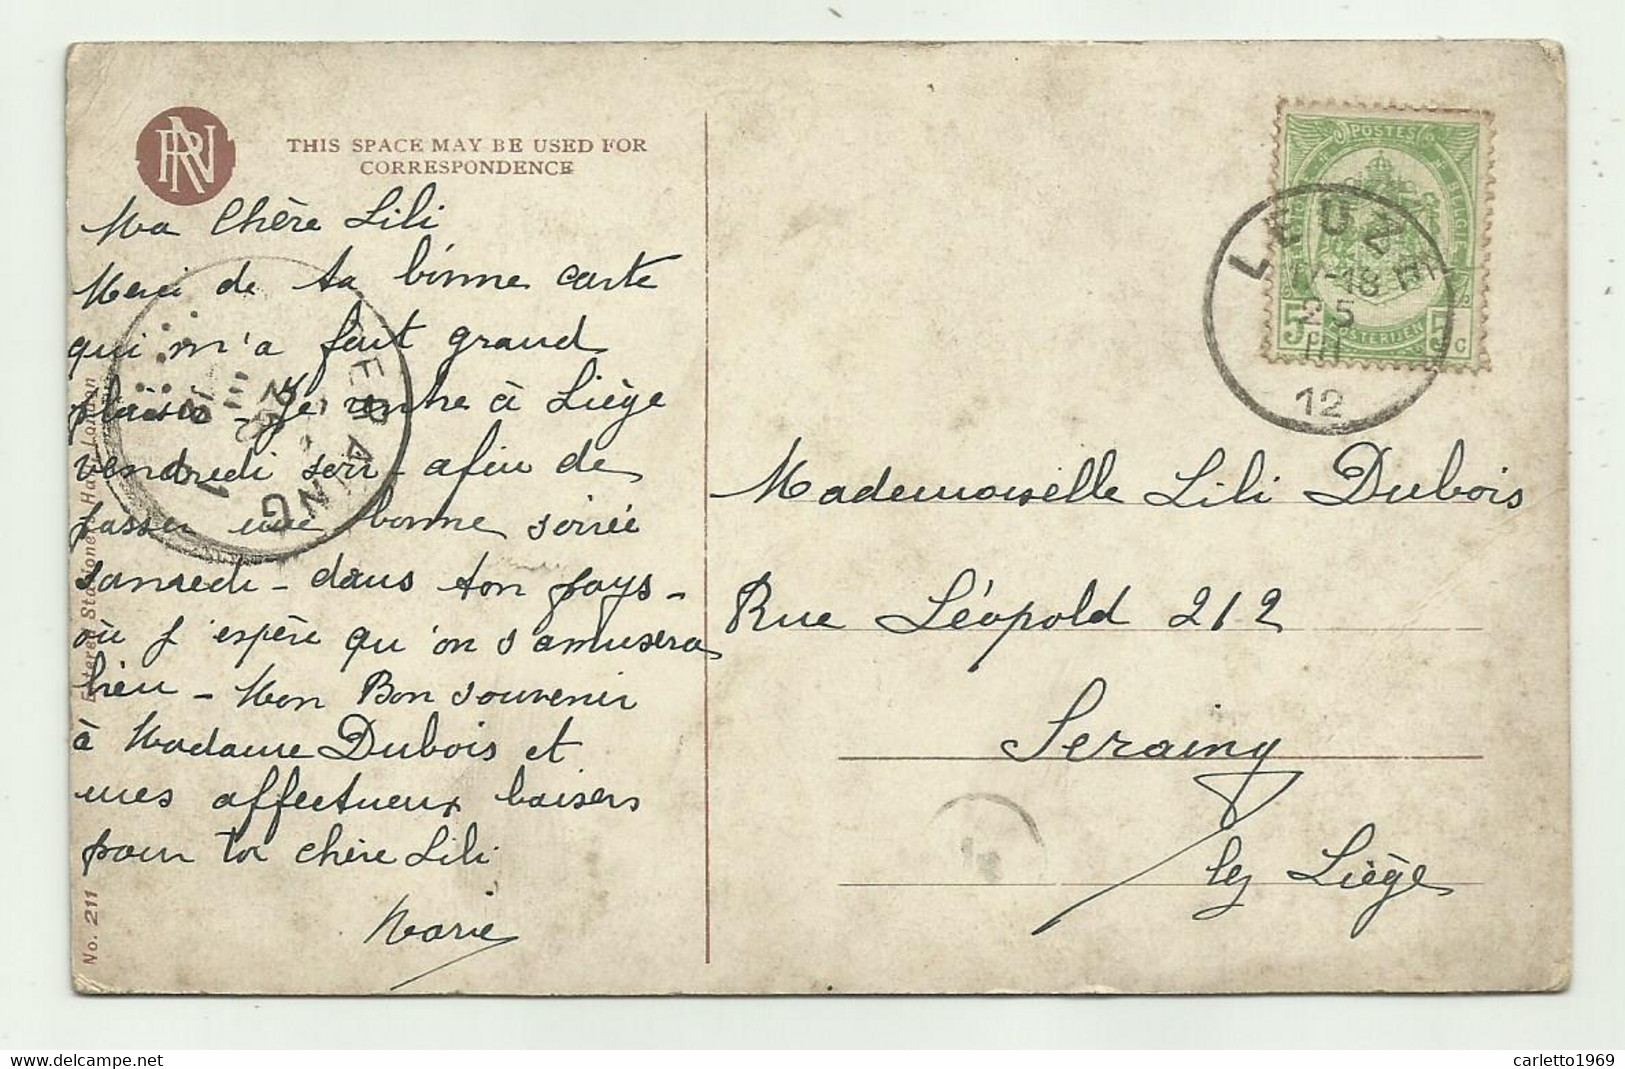 THIS SPACE MAY BE USED FOR
CORRESPONDENCE
Ma Chère Lili
Merci de ta bonne carte
qui m'a fait grand
plaisir - Je rentre à Liège
vendredi soir - afin de
passer une bonne soirée
samedi - dans ton pays -
où j'espère qu'on s'amusera
bien - Mon Bon souvenir
à Madame Dubois et
mes affectueux baisers
pour toi chère Lili
Marie
No. 211 Entered Stationers Hall London
SERAING
POSTES
BELGIE
5 5 C
LEUZE
25
III
12
Mademoiselle Lili Dubois
Rue Léopold 212
Seraing
lez Liège
www.delcampe.net
carletto1969